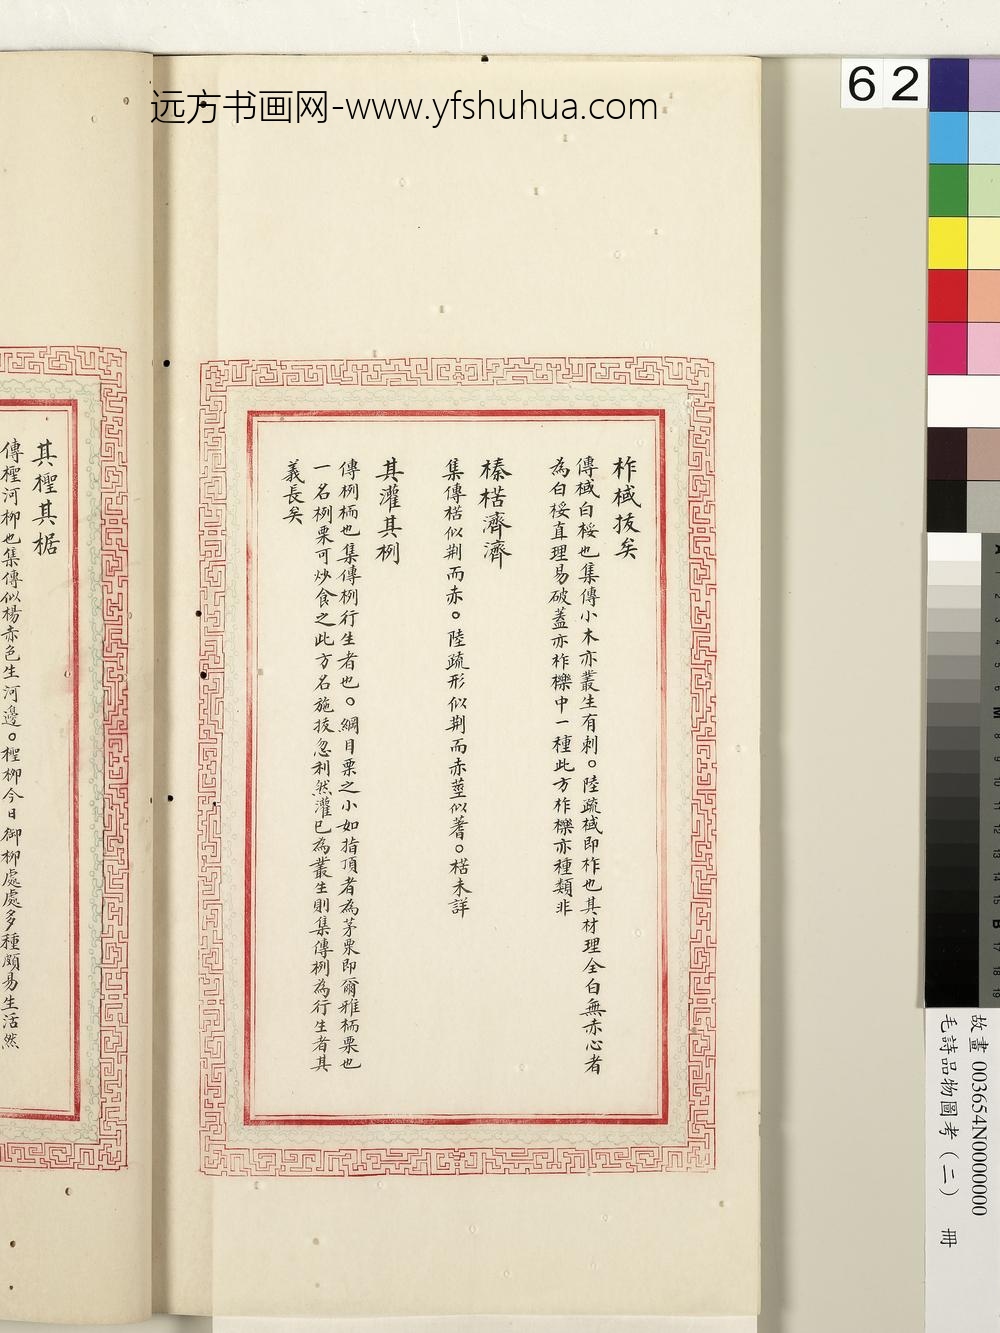 远方书画网-www.yfshuhua.com
62
柞棫拔矣
傳棫白桵也集傳小木亦叢生有刺。陸疏棫即柞也其材理全白無赤心者
為白桵直理易破蓋亦柞櫟中一種此方柞櫟亦種類非
榛楛濟濟
集傳楛似荆而赤。陸疏形似荆而赤莖似蓍。楛未詳
其灌其栵
傳栵栭也集傳栵行生者也。綱目栗之小如指頂者為茅栗即爾雅栭栗也
一名栵栗可炒食之此方名施扳忽利然灌已為叢生則集傳栵為行生者其
義長矣
其檉其椐
傳檉河柳也集傳似楊赤色生河邊。檉柳今日御柳處處多種頗易生活然
故畫 003654N0000000
毛詩品物圖考(二) 冊